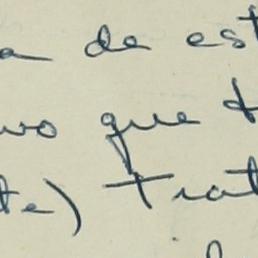 a de est
vo que t
te) trat